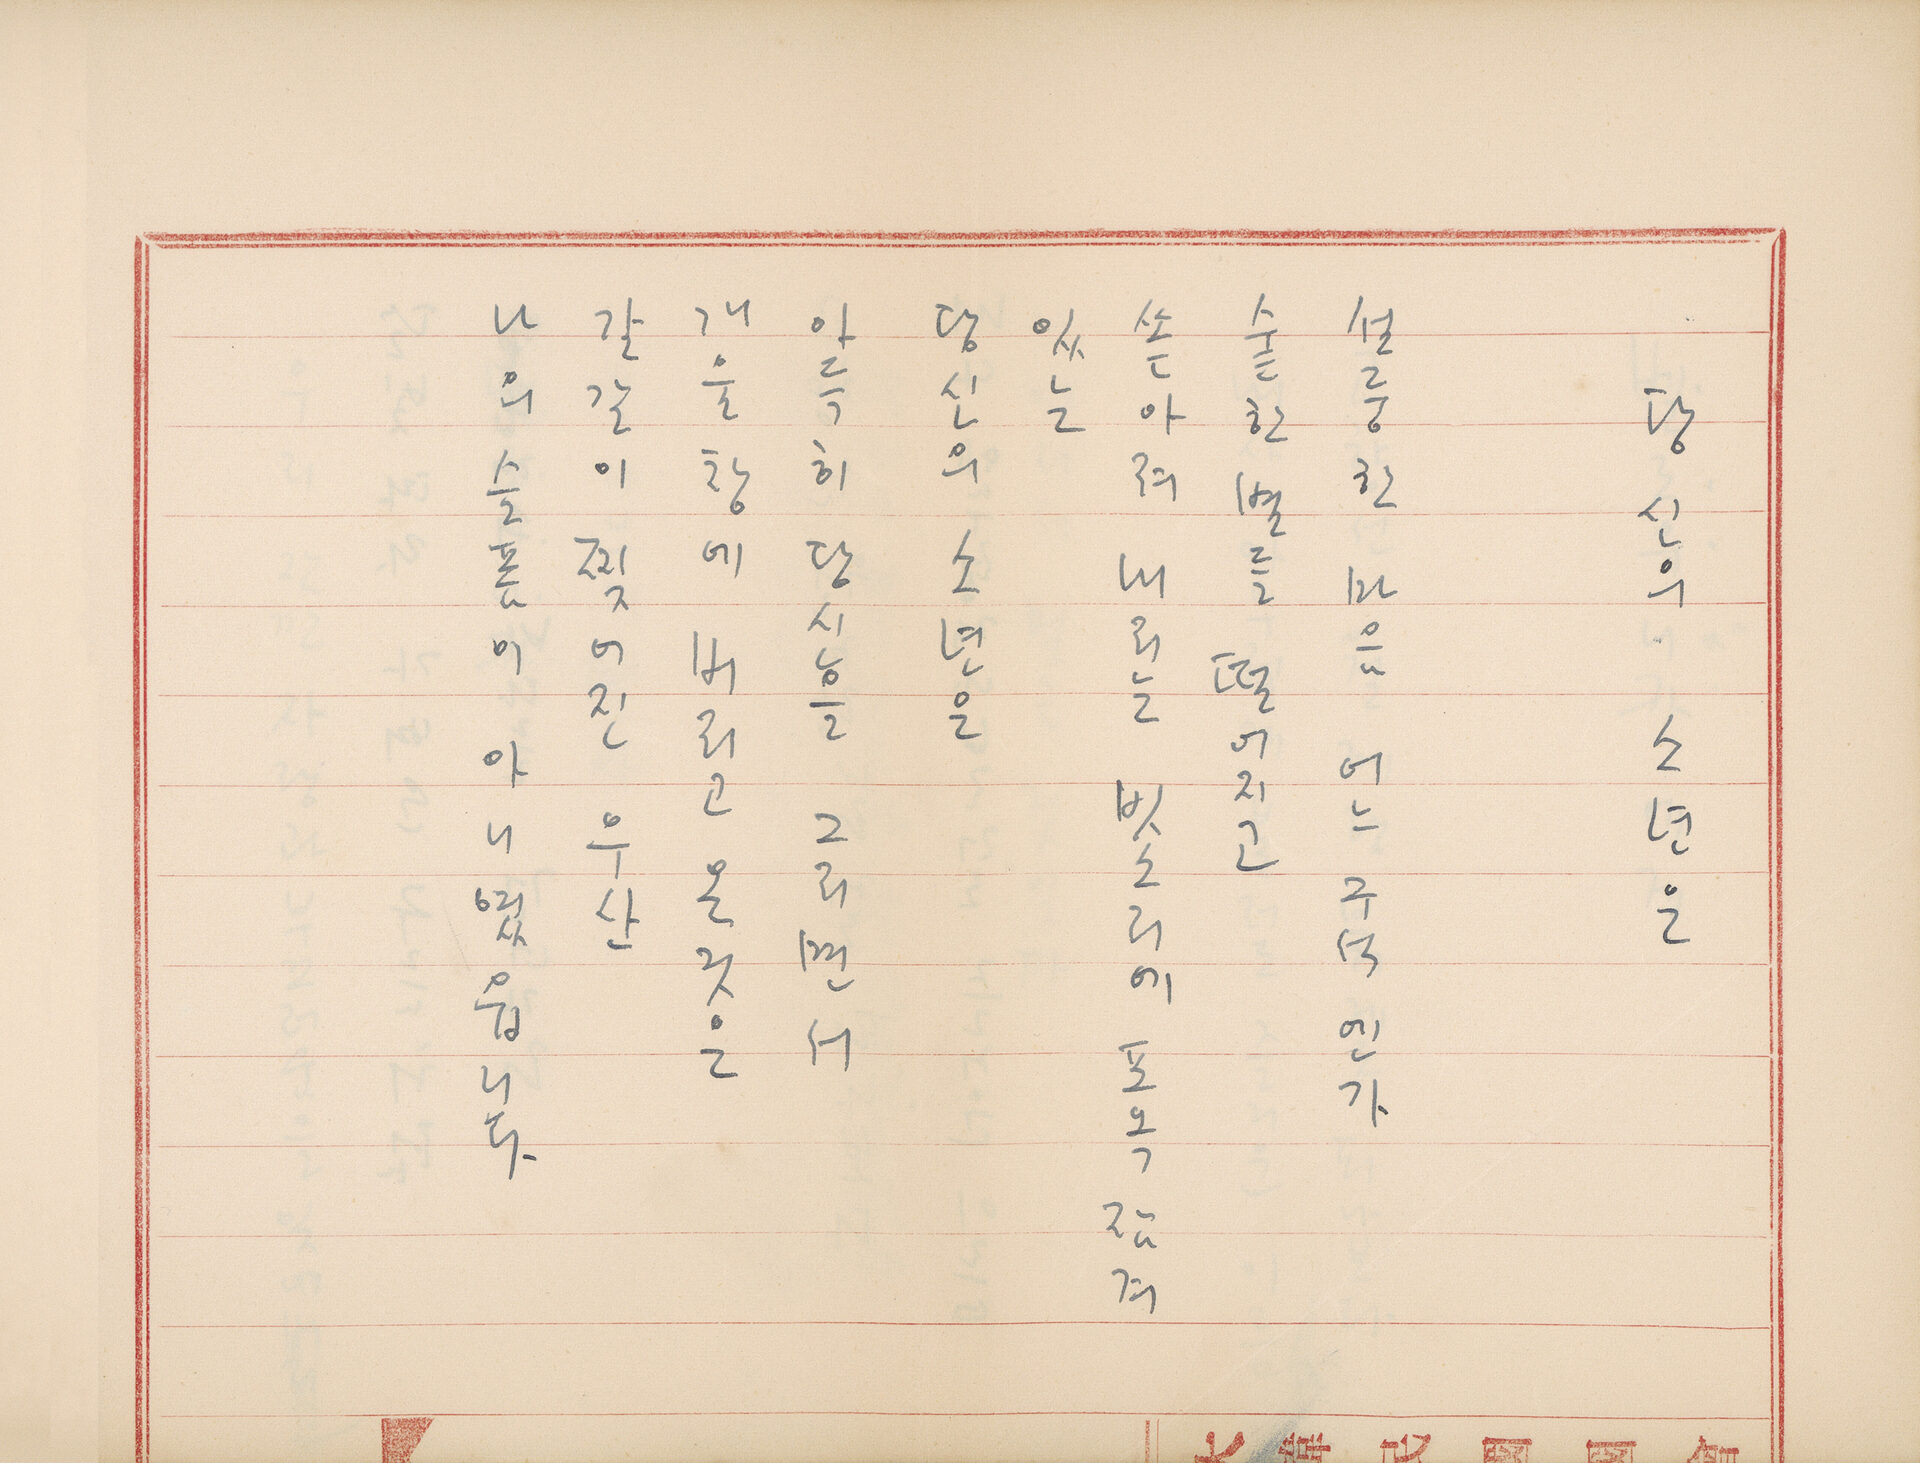 당신의 소년은
설룽한 마음 어느 구석엔가
숱한 별들 떨어지고
쏟아져 내리는 빗소리에 포옥 잠겨
있는
당신의 소년은
아득히 당신을 그리면서
개울창에 버리고 온 것은
갈갈이 찢어진 우산
나의 슬픔이 아니였읍니다